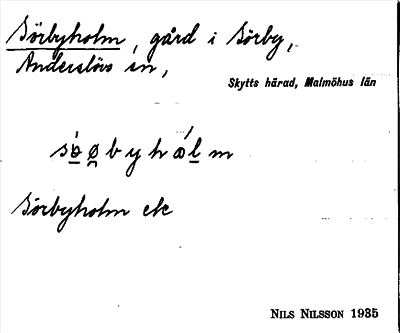 Sörbyholm, gård i Sörby,
Anderslövs sn,
Skytts härad, Malmöhus län
Sörbyholm etc
NILS NILSSON 1935